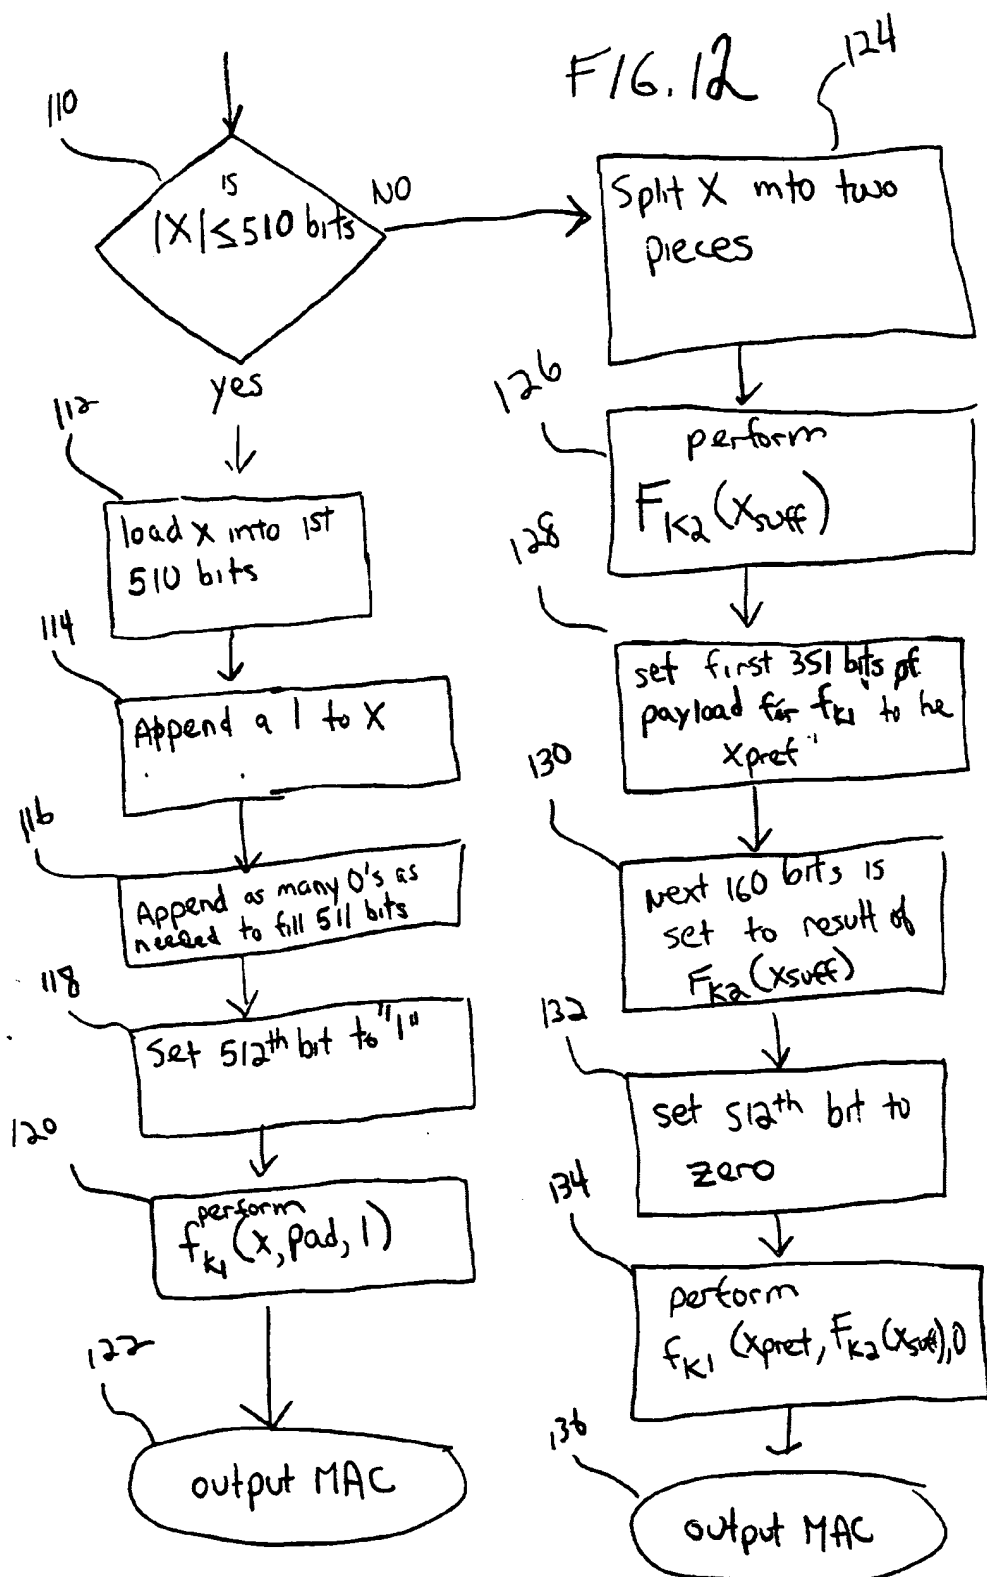 FIG. 12
110
is
|X| ≤ 510 bits
NO
yes
112
load x into 1st
510 bits
114
Append a 1 to X
116
Append as many 0's as
needed to fill 511 bits
118
Set 512th bit to "1"
120
perform
fK1 (x, pad, 1)
122
output MAC
124
Split X into two
pieces
126
perform
FK2 (Xsuff)
128
set first 351 bits of
payload for fK1 to be
Xpref
130
Next 160 bits is
set to result of
FK2 (Xsuff)
132
set 512th bit to
zero
134
perform
fK1 (xpref, FK2(Xsuff),0
136
output MAC